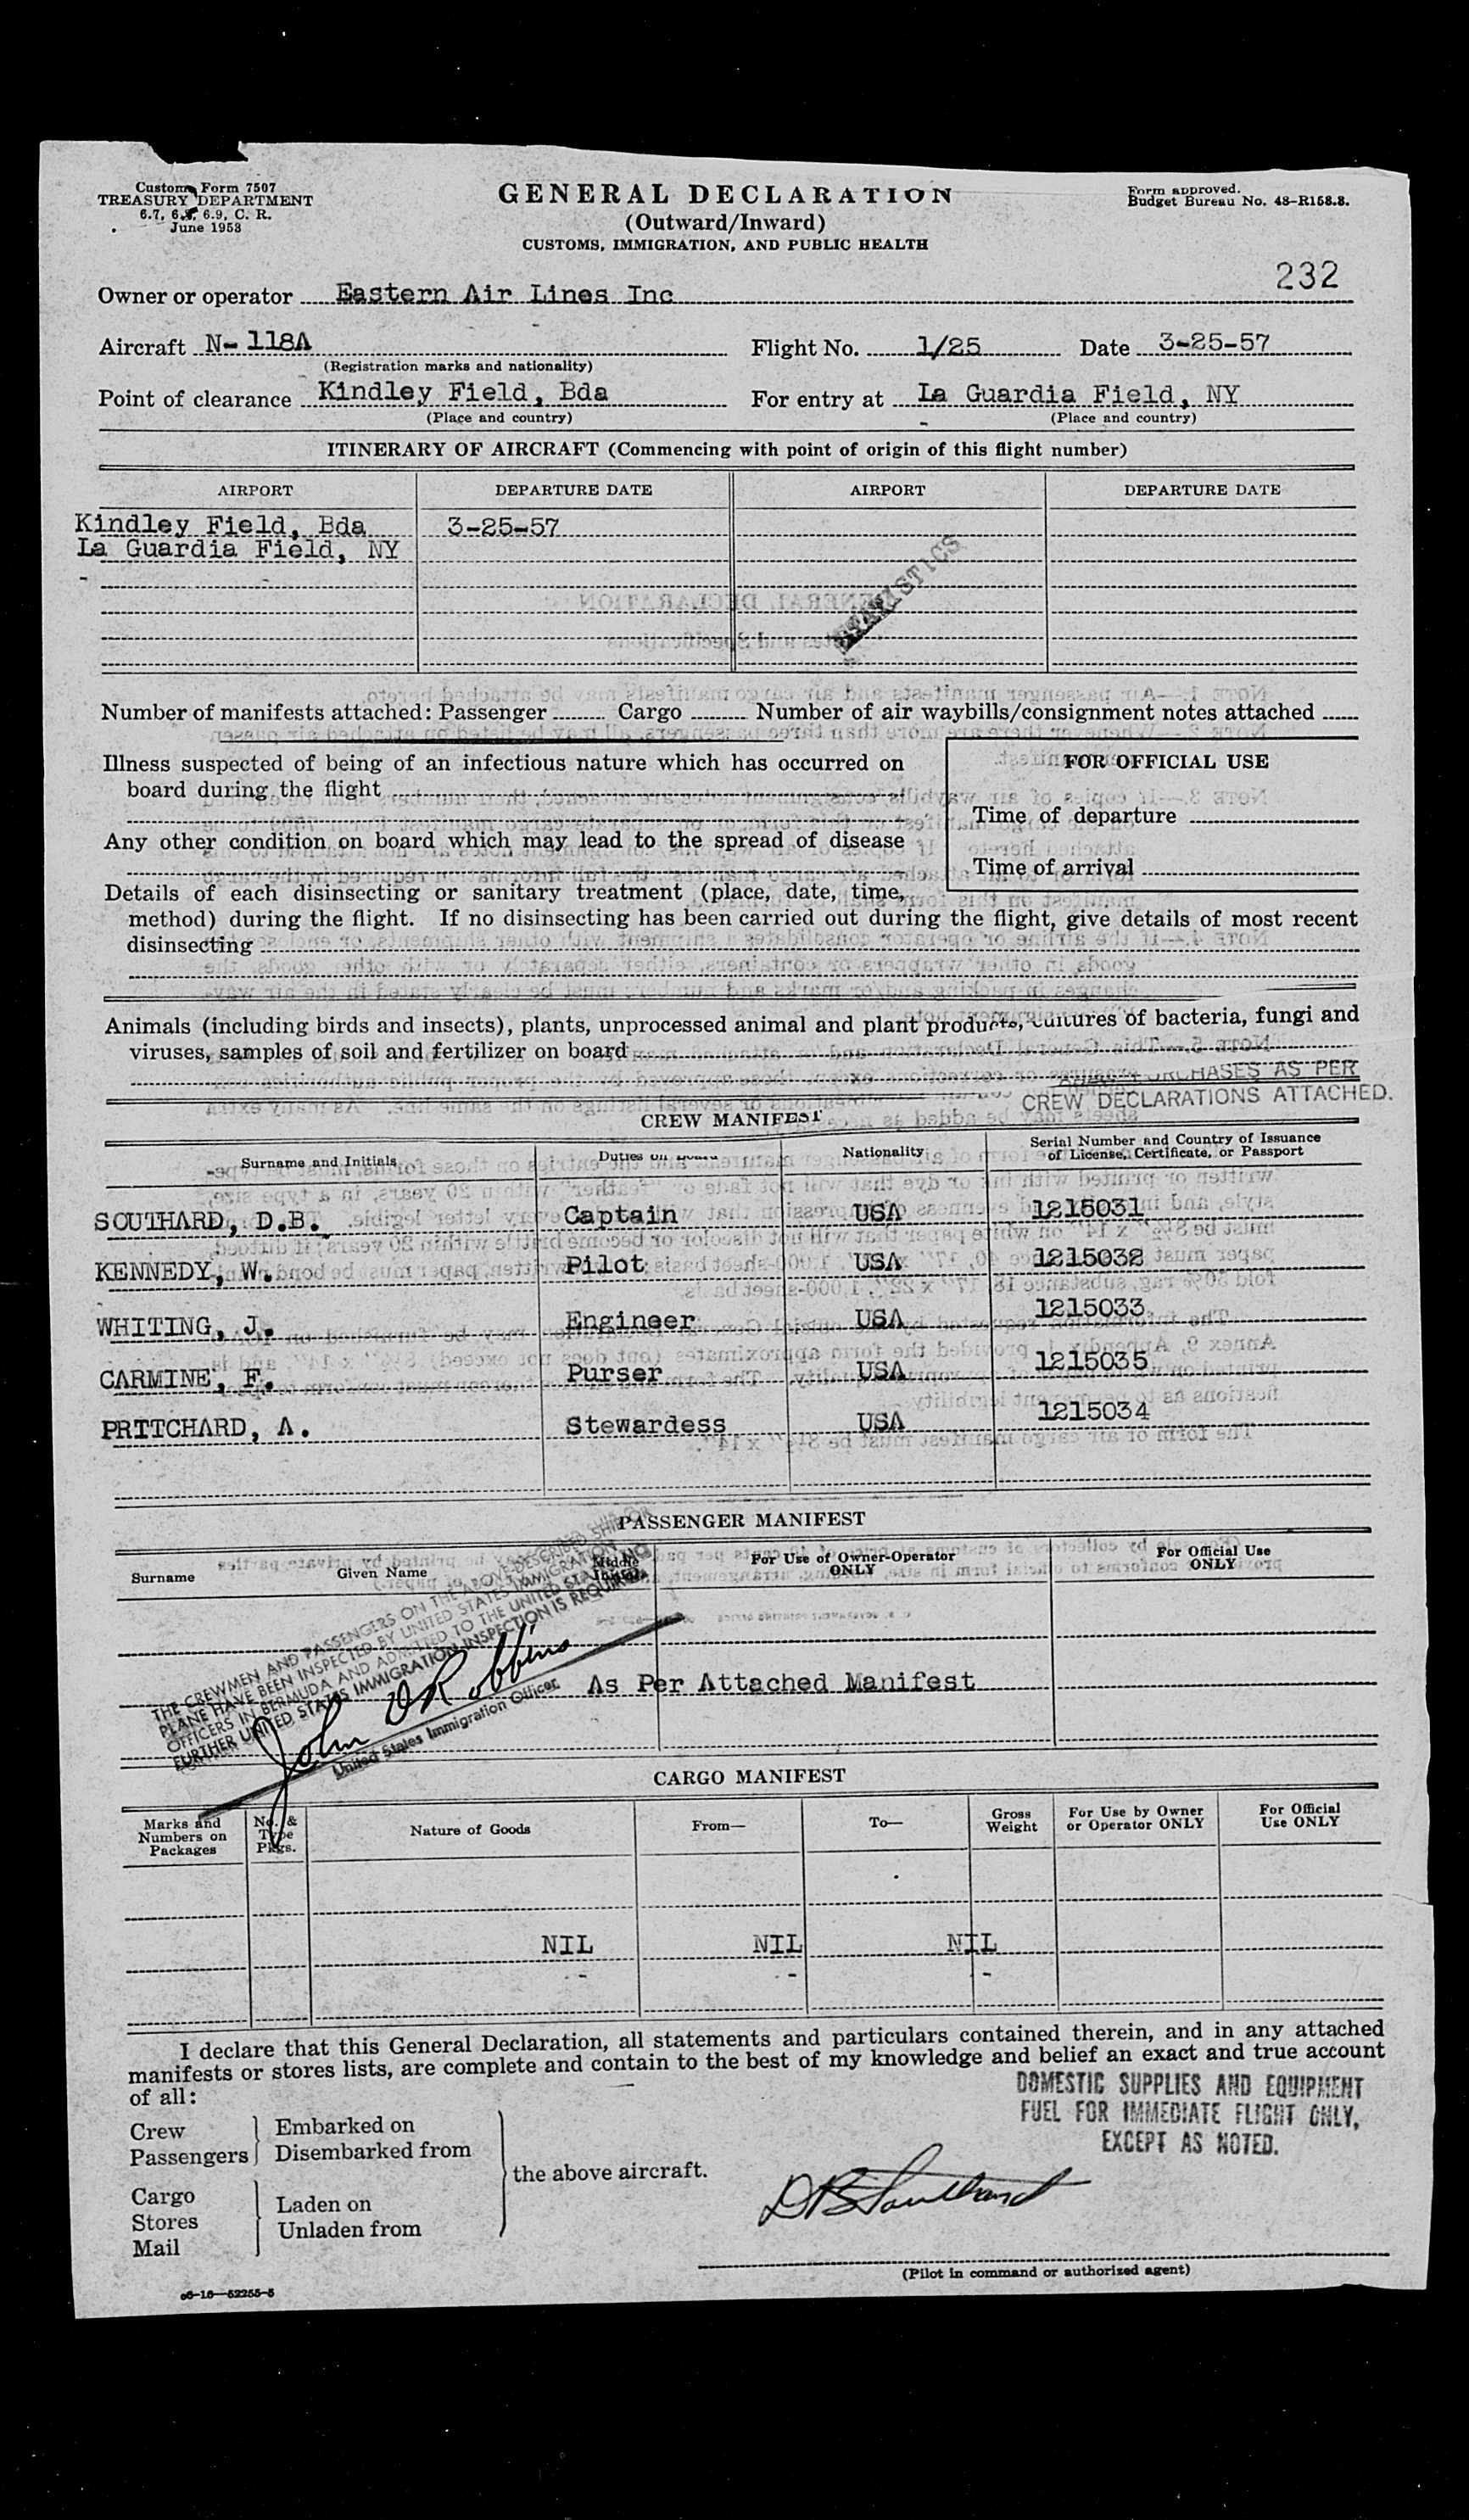 Customs Form 7507
TREASURY DEPARTMENT
6.7, 6.8, 6.9, C. R.
June 1953
GENERAL DECLARATION
(Outward/Inward)
CUSTOMS, IMMIGRATION, AND PUBLIC HEALTH
Form approved.
Budget Bureau No. 48-R158.3.
232
Owner or operator Eastern Air Lines Inc
Aircraft N- 118A Flight No. 1/25 Date 3-25-57
(Registration marks and nationality)
Point of clearance Kindley Field, Bda For entry at La Guardia Field, NY
(Place and country) (Place and country)
ITINERARY OF AIRCRAFT (Commencing with point of origin of this flight number)
AIRPORT DEPARTURE DATE AIRPORT DEPARTURE DATE
Kindley Field, Bda 3-25-57
La Guardia Field, NY
STATISTICS
Number of manifests attached: Passenger Cargo Number of air waybills/consignment notes attached
Illness suspected of being of an infectious nature which has occurred on
board during the flight
Any other condition on board which may lead to the spread of disease
FOR OFFICIAL USE
Time of departure
Time of arrival
Details of each disinsecting or sanitary treatment (place, date, time,
method) during the flight. If no disinsecting has been carried out during the flight, give details of most recent
disinsecting
Animals (including birds and insects), plants, unprocessed animal and plant products, cultures of bacteria, fungi and
viruses, samples of soil and fertilizer on board
PURCHASES AS PER
CREW DECLARATIONS ATTACHED.
CREW MANIFEST
Surname and Initials Duties on Board Nationality Serial Number and Country of Issuance
of License, Certificate, or Passport
SOUTHARD, D.B. Captain USA 1215031
KENNEDY, W. Pilot USA 1215032
WHITING, J. Engineer USA 1215033
CARMINE, F. Purser USA 1215035
PRITCHARD, A. Stewardess USA 1215034
PASSENGER MANIFEST
Surname Given Name Middle Initial For Use of Owner-Operator ONLY For Official Use ONLY
THE CREWMEN AND PASSENGERS ON THE ABOVE-DESCRIBED SHIP OR
PLANE HAVE BEEN INSPECTED BY UNITED STATES IMMIGRATION
OFFICERS IN BERMUDA AND ADMITTED TO THE UNITED STATES. NO
FURTHER UNITED STATES IMMIGRATION INSPECTION IS REQUIRED.
John D Robbins
United States Immigration Officer.
As Per Attached Manifest
CARGO MANIFEST
Marks and Numbers on Packages No. & Type Pkgs. Nature of Goods From— To— Gross Weight For Use by Owner or Operator ONLY For Official Use ONLY
NIL NIL NIL
I declare that this General Declaration, all statements and particulars contained therein, and in any attached
manifests or stores lists, are complete and contain to the best of my knowledge and belief an exact and true account
of all:
Crew Embarked on
Passengers Disembarked from
the above aircraft.
Cargo Laden on
Stores Unladen from
Mail
DOMESTIC SUPPLIES AND EQUIPMENT
FUEL FOR IMMEDIATE FLIGHT ONLY,
EXCEPT AS NOTED.
DB Southard
(Pilot in command or authorized agent)
c6-16—52255-5